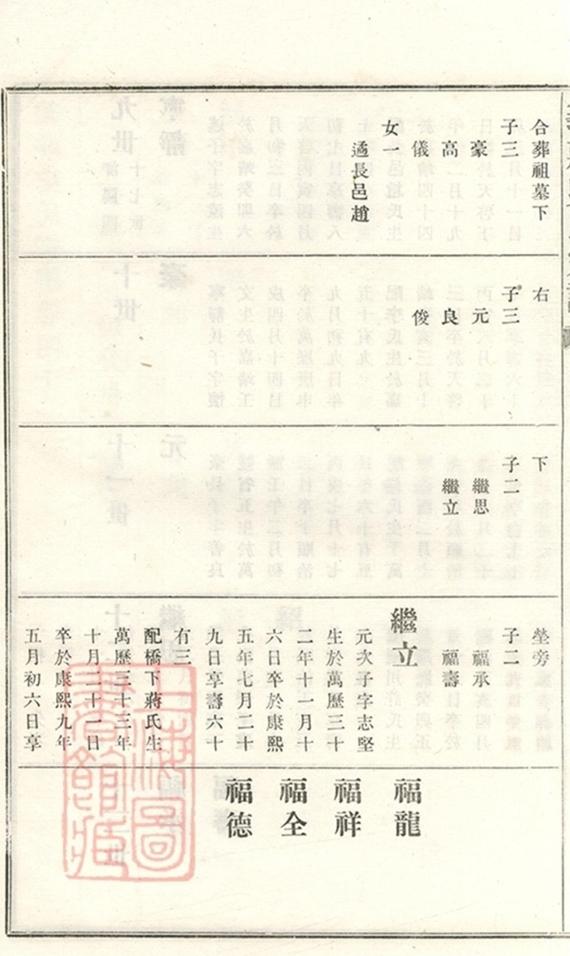 合葬祖墓下
子三
豪
高
儀
女一
適長邑趙
右
子三
元
良
俊
下
子二
繼思
繼立
塋旁
子二
福承
福壽
繼立
元次子字志堅
生於萬歷三十
二年十一月十
六日卒於康熙
五年七月二十
九日享壽六十
有三
配橋下蔣氏生
萬歷三十三年
十月二十一日
卒於康熙九年
五月初六日享
福龍
福祥
福全
福德
上海圖
書館藏